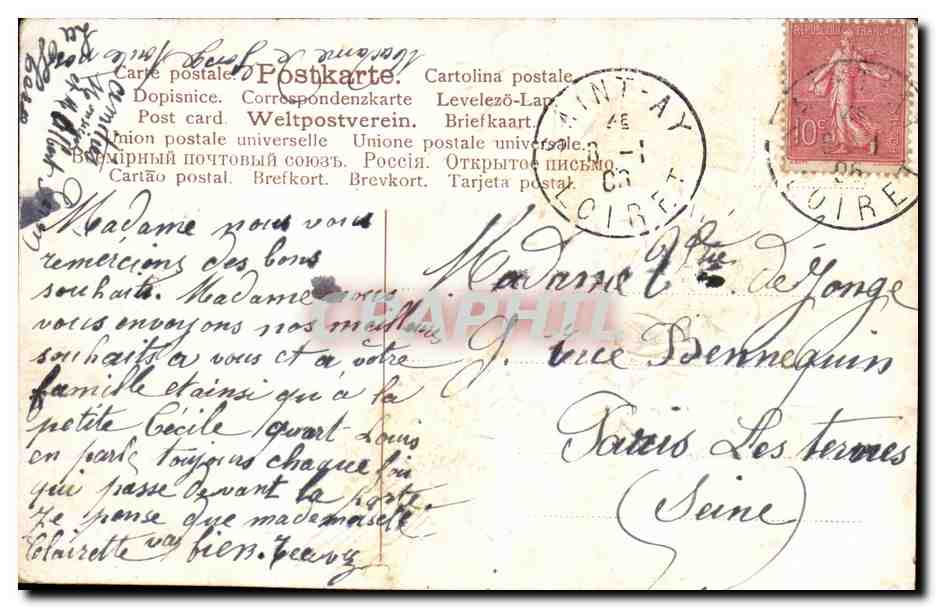 Madame de Jonge
Carte postale. Postkarte. Cartolina postale.
Dopisnice. Correspondenzkarte Levelezö-Lap.
Post card. Weltpostverein. Briefkaart.
Union postale universelle Unione postale universale.
Всемірный почтовый союзъ. Россія. Открытое письмо.
Cartão postal. Brefkort. Brevkort. Tarjeta postal.
REPUBLIQUE FRANÇAISE
10c
SAINT-AY
LOIRET
LOIRET
Madame nous vous
remercions des bons
souhaits. Madame nous
vous envoyons nos meilleurs
souhaits a vous et a votre
famille et ainsi qu'à la
petite Cécile quart Louis
en parle toujours chaque foi
qui passe devant la porte
Je pense que mademoiselle
Clairette va bien.
Madame Vve de Jonge
9. rue Bennequin
Paris Les ternes
(Seine)
CPAPHIL